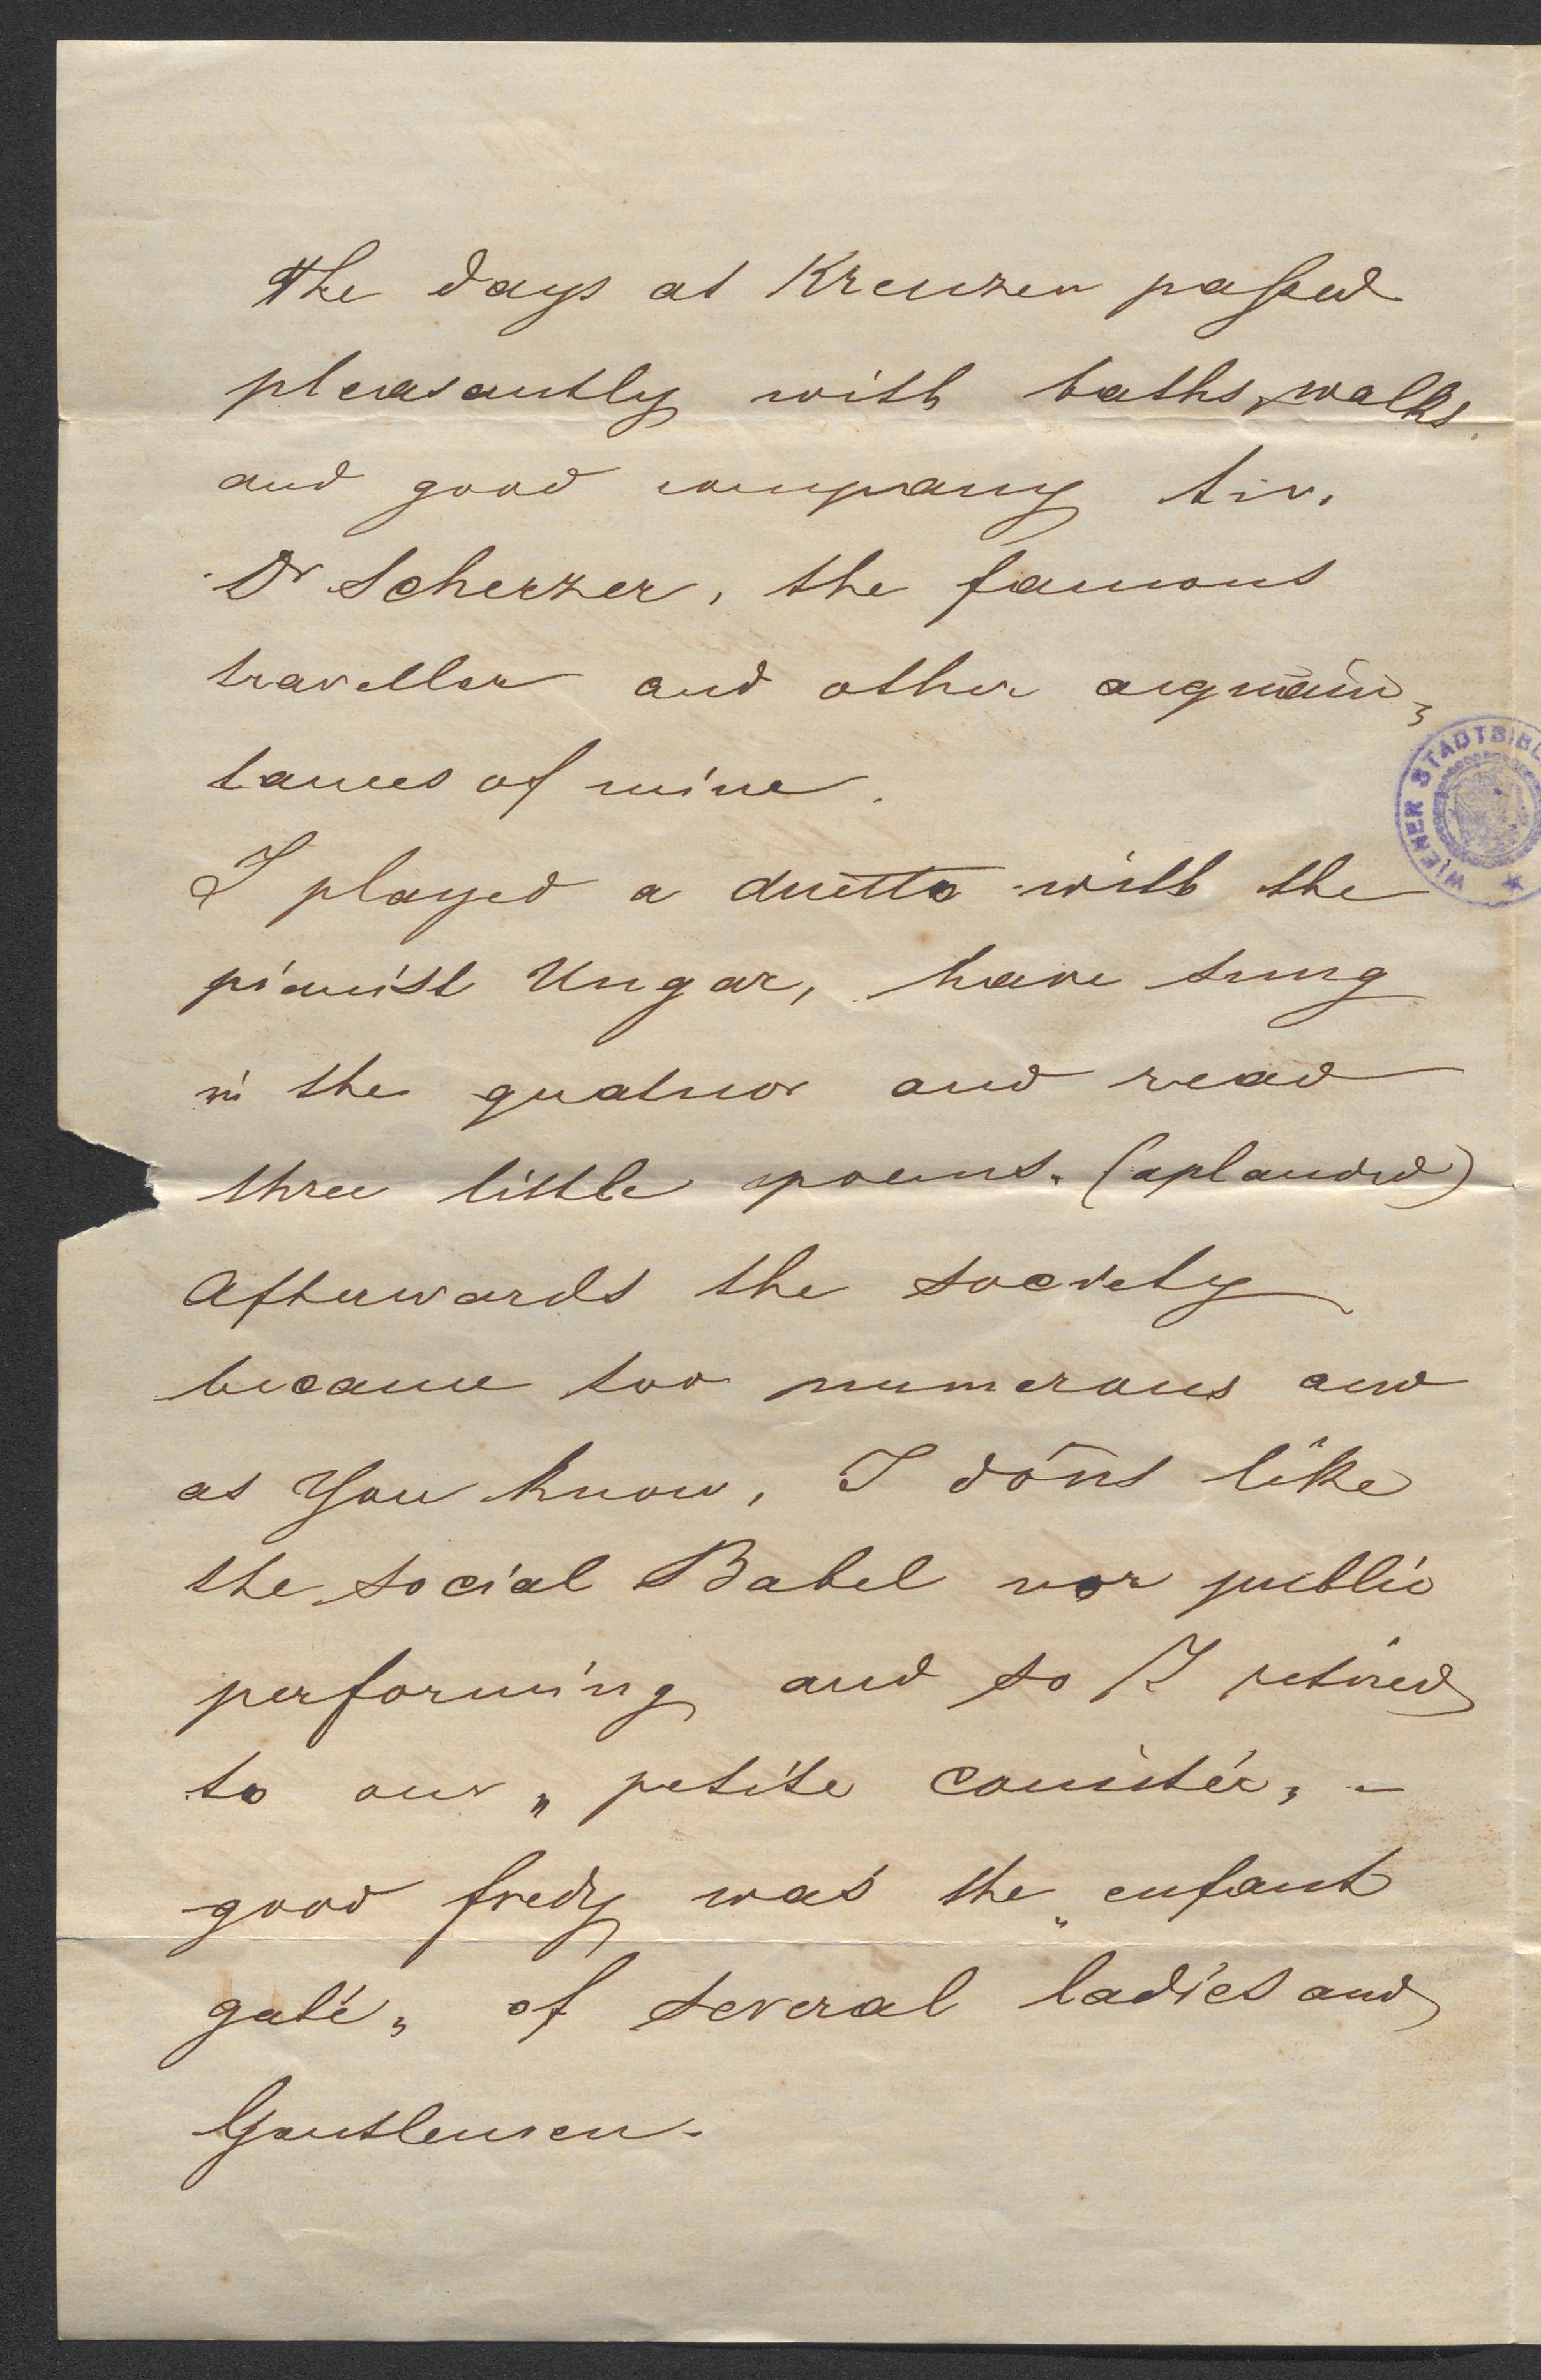 The days at Kreuzen passed
pleasantly with baths, walks
and good company
Dr Scherzer, the famous
traveller and other aequain„
tances of mine.
I played a duetto with the
pianist Ungar, have sung
in the quatuor and read
three little poems. (aplauded)
Afterwards the society
became too numerous and
as You know, I dont like
the social Babel nor public
performing and so I retired
to our „petite comitée„ –
good fredy was the „enfant
gaté„ of several ladies and
Gentlemen.
WIENER STADTBIB